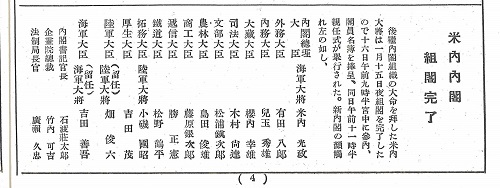 米内內閣
組閣完了
後繼內閣組織の大命を拜した米内
大將は一月十五日夜組閣を完了した
ので十六日午前九時半宮中に參內、
閣員名簿を捧呈、同日午前十一時半
親任式が擧行された。新內閣の顏觸
れ左の如し。
內閣總理大臣 海軍大將 米内光政
外務大臣 有田八郎
內務大臣 兒玉秀雄
大藏大臣 櫻內幸雄
司法大臣 木村尙達
文部大臣 松浦鎭次郎
農林大臣 島田俊雄
商工大臣 藤原銀次郎
遞信大臣 勝正憲
鐵道大臣 松野鶴平
拓務大臣 陸軍大將 小磯國昭
厚生大臣 吉田茂
陸軍大臣 (留任)陸軍大將 畑俊六
海軍大臣 (留任)海軍大將 吉田善吾
內閣書記官長 石渡莊太郎
企畫院總裁 竹內可吉
法制局長官 廣瀨久忠
(4)